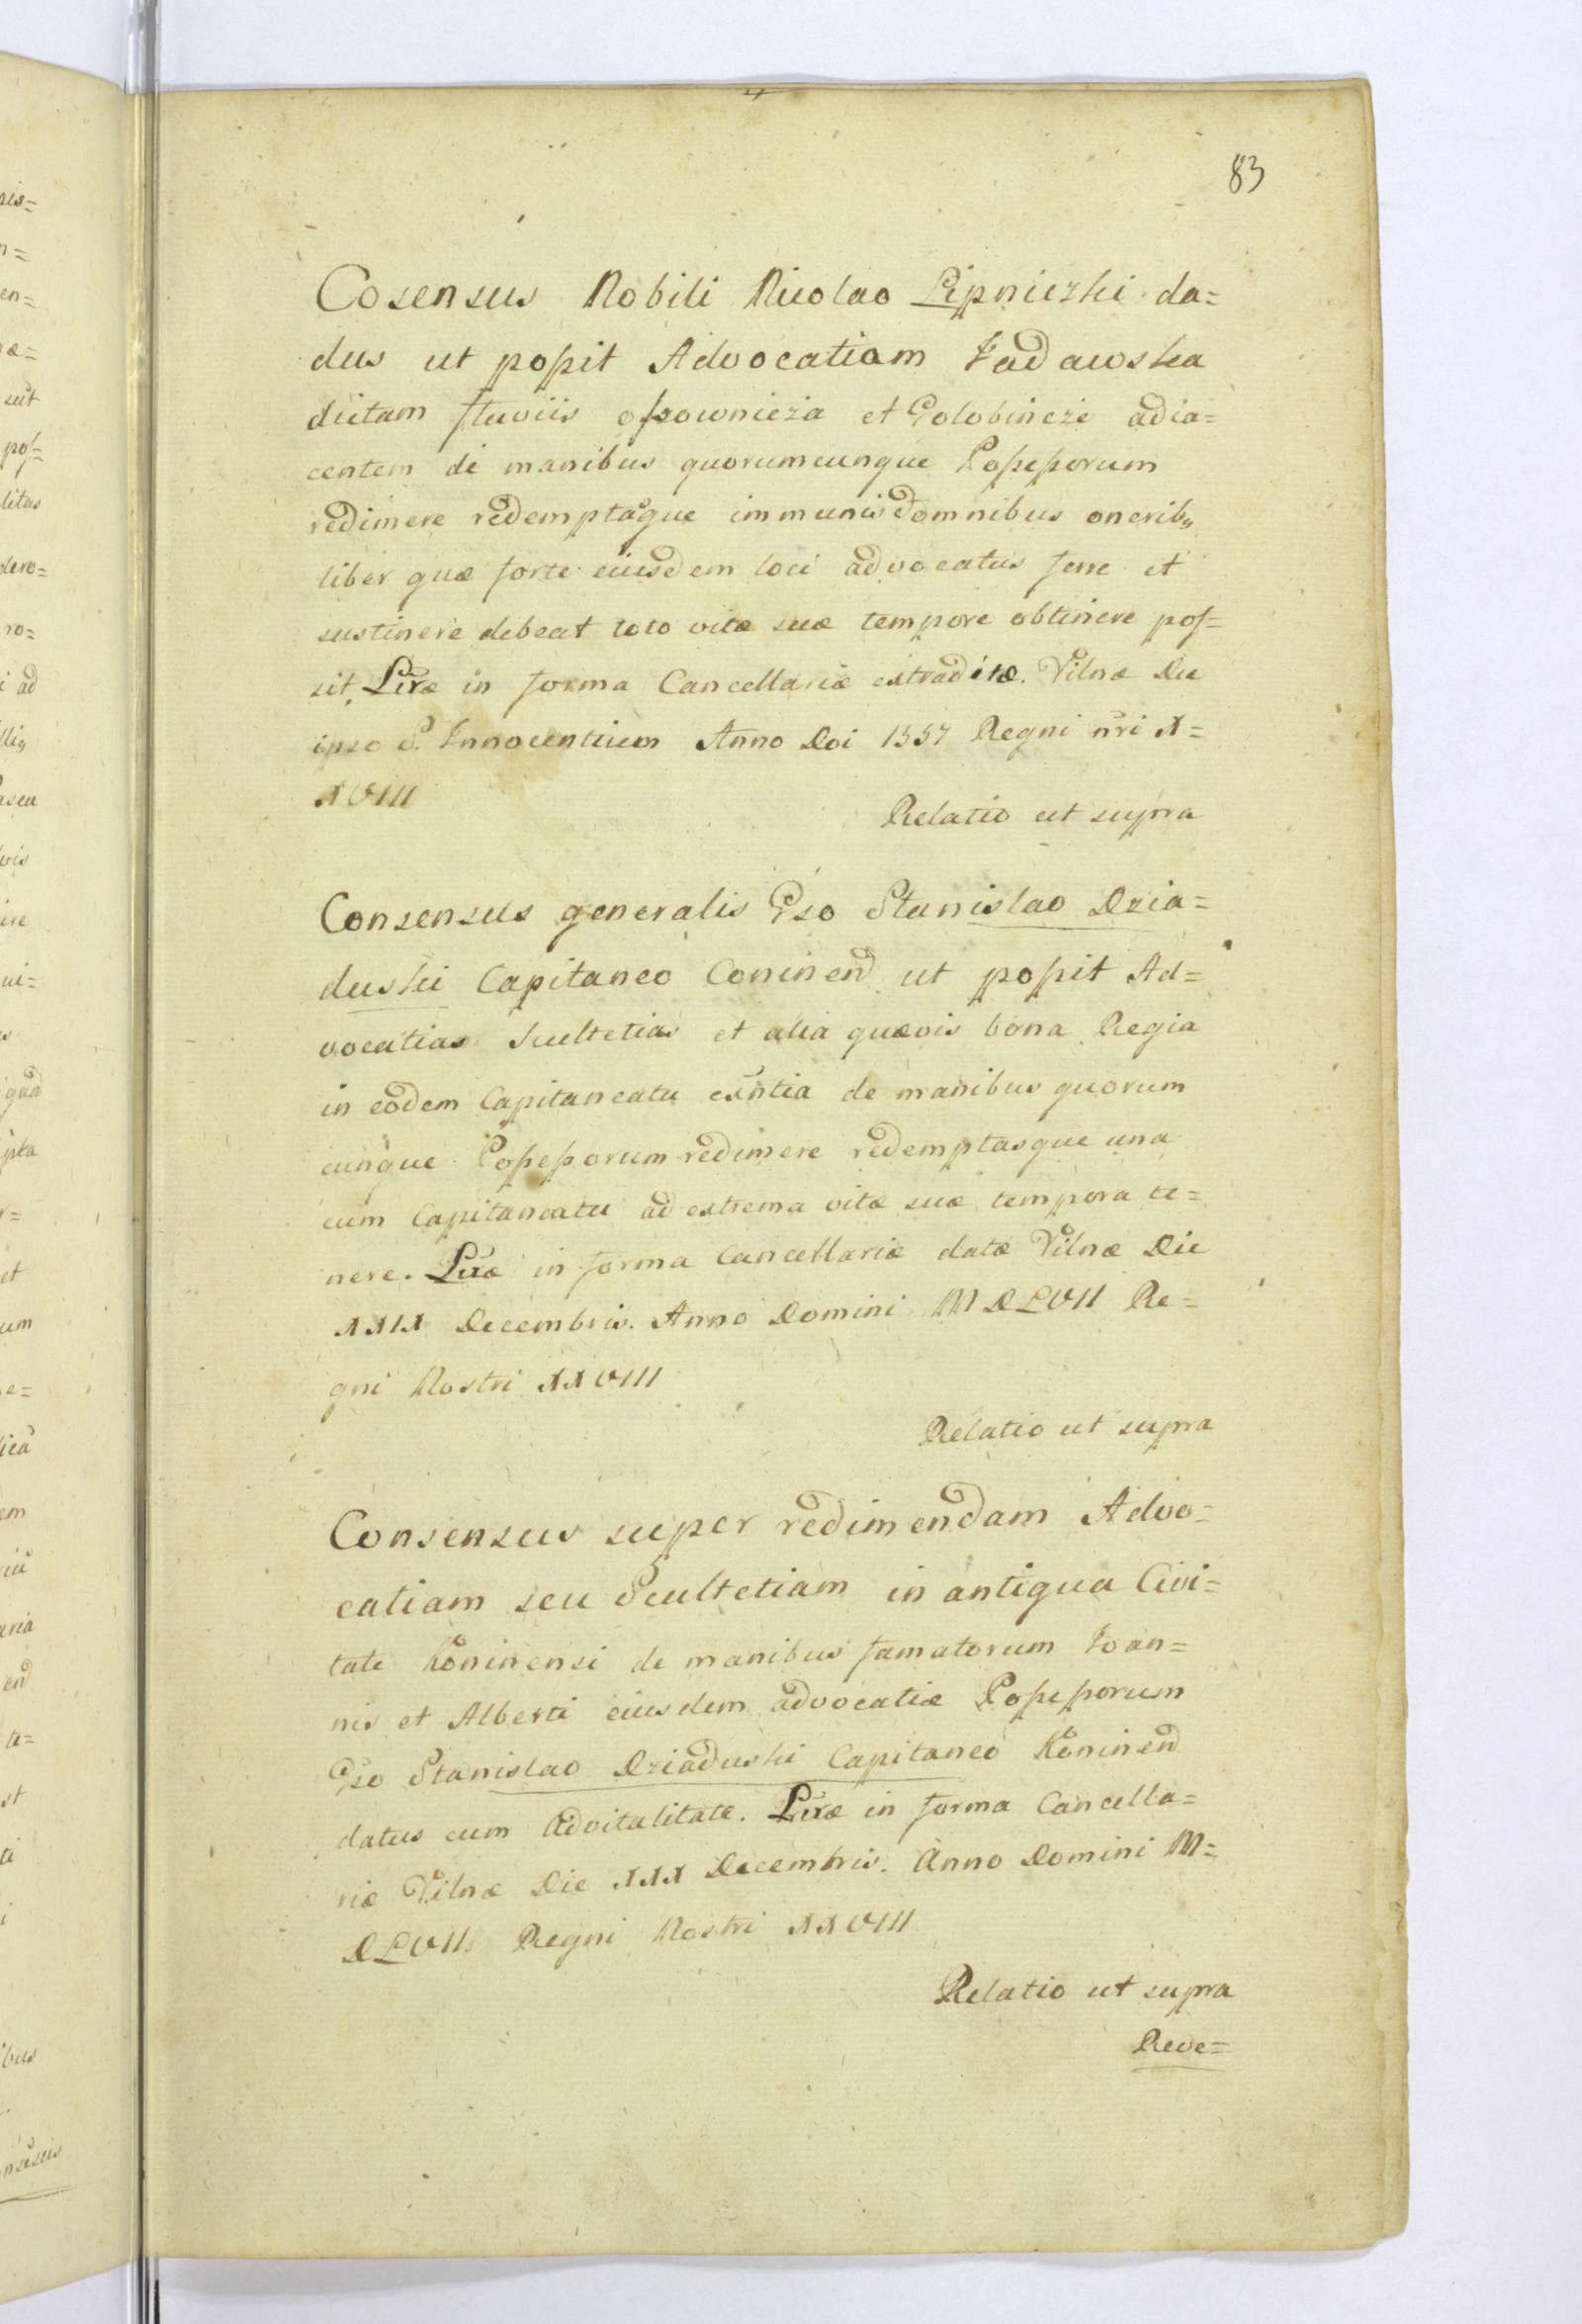 83
Cosensus Nobili Nicolao Lipniczki da=
dus ut poßit Advocatiam Jadawska
dictam fluviis oßownicza et Golobincze adia=
centem de manibus quorumcunque Poßeßorum
redimere redemptaque immunis ab omnibus onerib9
liber quæ forte eiusdem loci advocatus ferre et
sustinere debeat toto vitæ suæ tempore obtinere pos=
sit, Lræ in forma Cancellariæ extraditæ. Vilnæ Die
ipso S. Innocentium Anno Doi 1557 Regni nri X=
XVIII
Relatio ut supra
Consensus generalis Gso Stanislao Dzia=
duski Capitaneo Coninen ut poßit Ad=
vocatias Scultetias et alia quævis bona Regia
in eodem Capitaneatu exntia de manibus quorum
cunque Poßeßorum redimere redemptasque una
cum Capitaneatu ad extrema vitæ suæ tempora te=
nere. Lræ in forma Cancellariæ datæ Vilnæ Die
XXIX Decembris. Anno Domini MDLVII Re=
gni Nostri XXVIII
Relatio ut supra
Consensus super redimendam Advo=
catiam seu Scultetiam in antiqua Civi=
tate Koninensi de manibus famatorum Ioan=
nis et Alberti eiusdem advocatiæ Poßeßorum
Gso Stanislao Dziaduski Capitaneo Koninen
datus cum Advitalitate. Lræ in forma Cancella=
riæ Vilnæ Die XXX Decembris. Anno Domini M=
DLVII Regni Nostri XXVIII
Relatio ut supra
Reve=